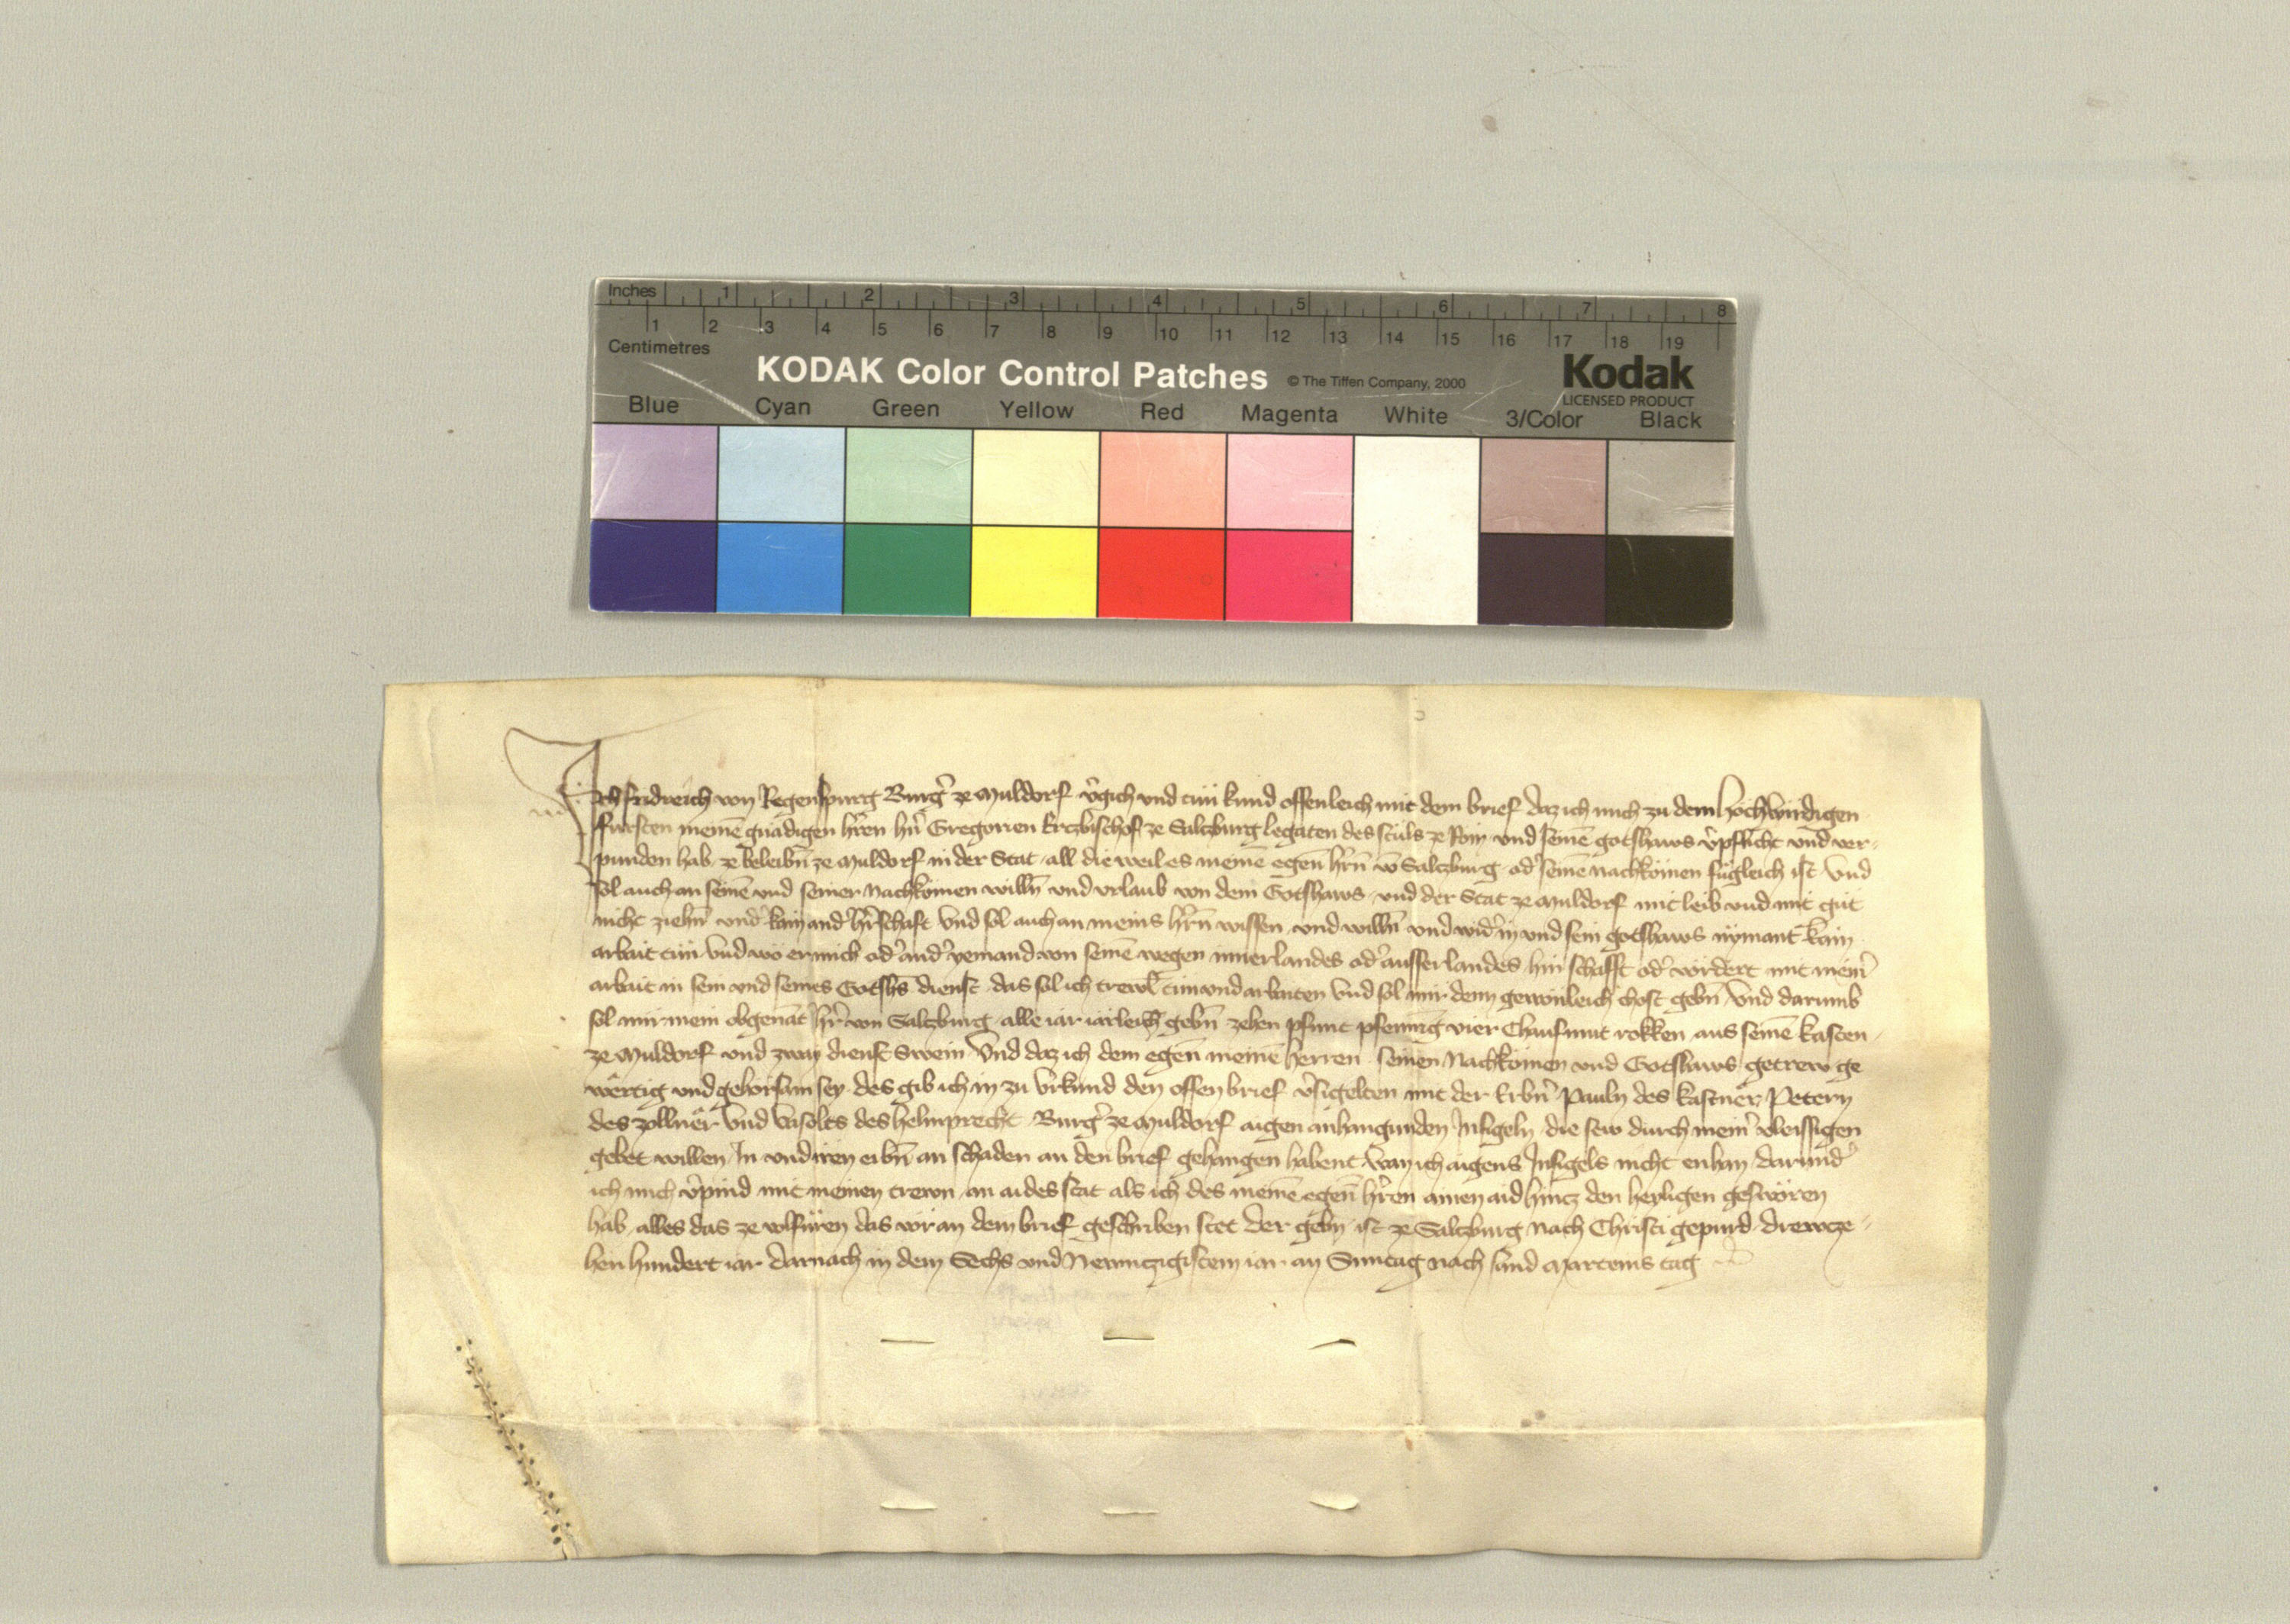 Inches 1 2 3 4 5 6 7 8
1 2 3 4 5 6 7 8 9 10 11 12 13 14 15 16 17 18 19
Centimetres
KODAK Color Control Patches © The Tiffen Company, 2000 Kodak
LICENSED PRODUCT
Blue Cyan Green Yellow Red Magenta White 3/Color Black
Ich fridreich von Regenspurg Burg̉ ze Muldorf v̉gich vnd tun kund offenleich mit dem brief daz ich mich zu dem hochwirdigen
fursten meinē gnädigen hr̄en hn̄ Gregorien Erczbischof ze Salczburg legaten des stuls ze Rom vnd seinē gotshaws v̉pflicht vnd ver-
punden hab ze beleibn̄ ze Muldorf in der Stat all die weil es meinē egen̄ hr̄n vō Salczburg od̉ seinē nachkömen fügleich ist Vnd
sol auch an seinē vnd seiner Nachkömen willn̄ vnd vrlaub von dem Gotshaws vnd der Stat ze Muldorf mit leib vnd mit gut
nicht ziehn̄ vnd̉ kain and̉ hr̄schaft Vnd sol auch an meins hr̄n wissen vnd willn̄ vnd wid̉ in vnd sein gotshaws nÿmant kain
arbait tun Vnd wo er mich od̉ and̉ yemand von seinē wegen innerlandes od̉ ausserlandes hin schafft od̉ vordert mit mein̉
arbait in sein vnd seines Gotshs dienst das sol ich trewl̄ tun vnd arbaiten Vnd sol mir denn gewönleich chost gebn̄ Vnd darumb
sol mir mein obgenāt hr̄ von Salczburg alle iar iärleich gebn̄ zehen pfunt pfennīg vier Chaufmut rokken aus seinē kasten
ze Muldorf vnd zway dienst Swein Vnd daz ich dem egen̄ meinē herren seinen Nachkömen vnd Gotshaws getrew ge
wërtig vnd gehorsam sey des gib ich in zu Vrkund den offen brief v̉sigelten mit der Erbn̄ Pauln des kastnër Petern
des zollnër Vnd Vasolts des helmprecht Burg̉ ze Muldorf aigen anhangunden Insigeln die sew durch mein̉ vleissigen
gebet willen In vnd iren eribn̄ an schaden an den brief gehangen habent wan ich aigens Insigels nicht enhan darund̉
ich mich v̉pind mit meinen trewn an aides stat als ich des meinē egen̄ hr̄en ainen aid hincz den heyligen geswören
hab alles das ze volfüren das vor an dem brief geschriben stet der gebn̄ ist ze Salczburg Nach Christi gepurd drewcze-
hen hundert iar darnach in dem Sechs vnd Newnczigistem iar an Suntag nach sand Marteins tag